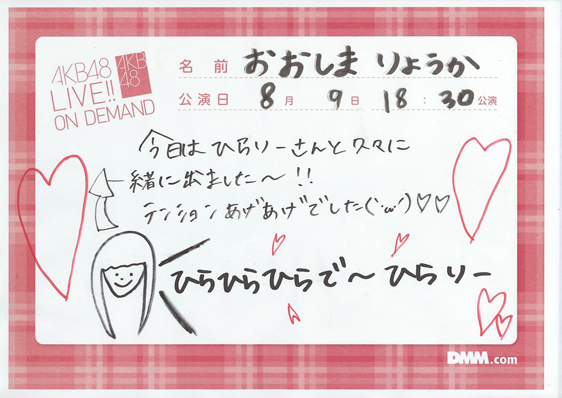 AKB48
LIVE!!
ON DEMAND
AKB
48
名 前 おおしま りょうか
公演日 8月 9日 18:30公演
今日は ひらりーさんと 久々に
一緒に出ました〜!!
テンションあげあげでした(・ω・)♡♡
ひらひらひらで〜 ひらりー
DMM.com